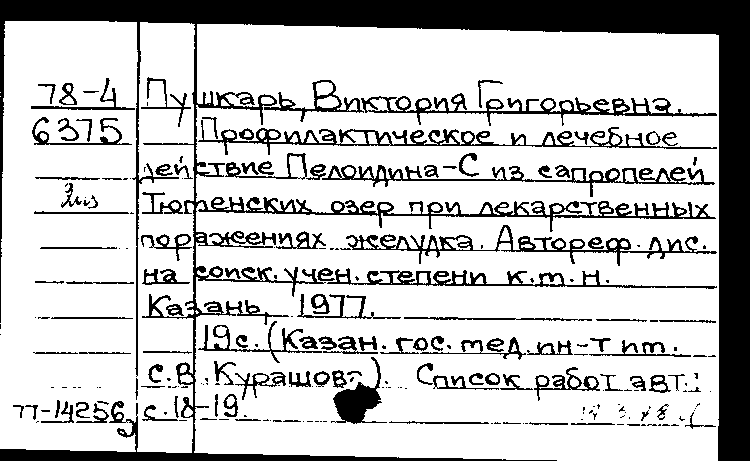 78-4 Пушкарь, Виктория Григорьевна.
6375 Профилактическое и лечебное
действие Пелоидина-С из сапропелей
Тюменских озер при лекарственных
поражениях желудка. Автореф. дис.
на соиск. учен. степени к.м.н.
Казань, 1977.
19с. (Казан. гос. мед. ин-т им.
С.В. Курашова). Список работ авт.:
77-14256 с. 18-19.